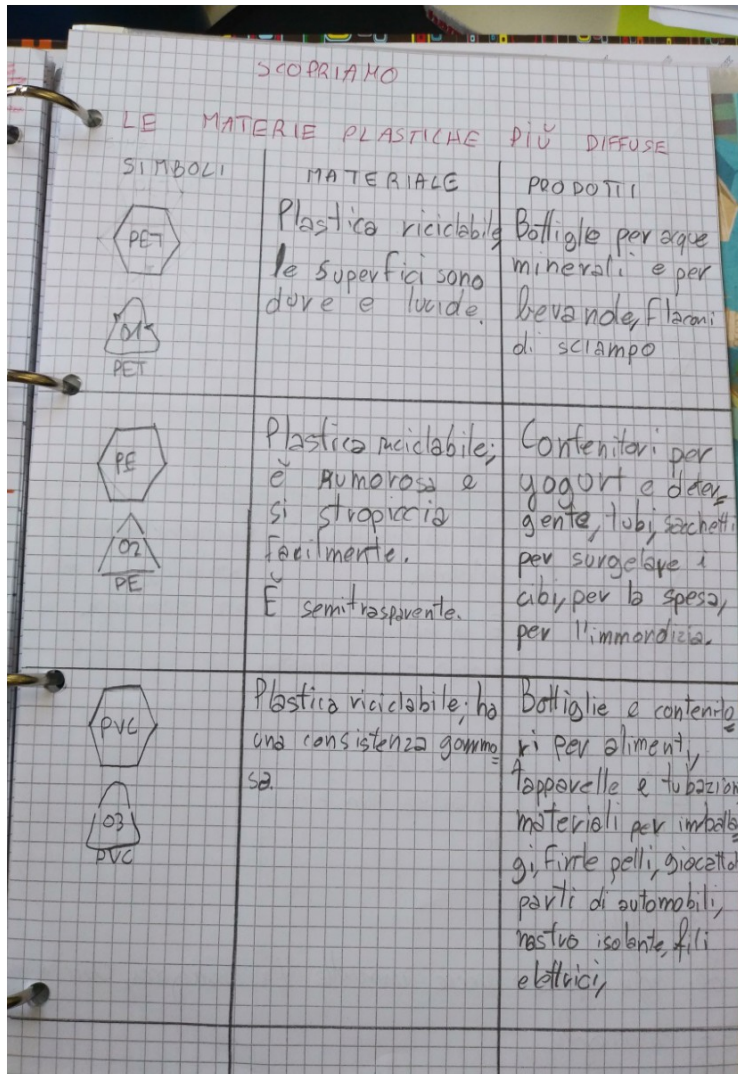 SCOPRIAMO
LE MATERIE PLASTICHE PIÙ DIFFUSE
SIMBOLI
MATERIALE
PRODOTTI
PET
01
PET
Plastica riciclabile
le superfici sono
dure e lucide.
Bottiglie per acque
minerali e per
bevande, flaconi
di sciampo
PE
02
PE
Plastica riciclabile;
è rumorosa e
si stropiccia
facilmente.
È semitrasparente.
Contenitori per
yogurt e deter=
gente, tubi, sacchetti
per surgelare i
cibi, per la spesa,
per l'immondizia.
PVC
03
PVC
Plastica riciclabile; ha
una consistenza gommo=
sa.
Bottiglie e contenito=
ri per alimenti,
tapparelle e tubazion
materiali per imballa=
gi, finte pelli, giocatto
parti di automobili,
nastro isolante, fili
elettrici,